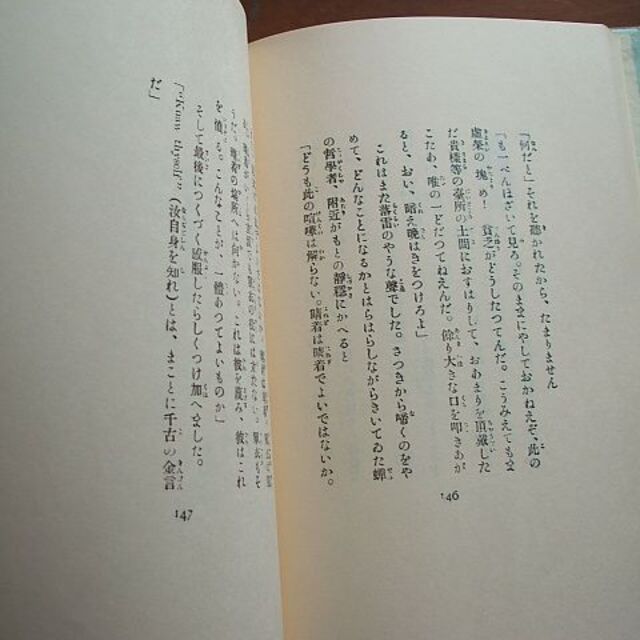 「何だと」それを聽かれたから、たまりません
「も一ぺんほざいて見ろ。そのまゝにやしておかねえぞ、此の
虚榮の塊め！　貧乏がどうしたつてんだ。こうみえてもま
だ貴樣等の臺所の土間におすはりして、おあまりを頂戴した
こたあ、唯の一どだつてねえんだ。餘り大きな口を叩きあが
ると、おい、暗え晩はきをつけろよ」
これはまた落雷のやうな聲でした。さつきから啼くのをや
めて、どんなことになるかとはらはらしながらきいてゐた蟬
の哲學者、附近がもとの靜穩にかへると
「どうも此の喧嘩は解らない。晴着は晴着でよいではないか。
146
うだ。晴着の場所へは向かない。これは彼を蔑み、彼はこれ
を嘲る。こんなことが、一體あつてよいものか」
そして最後につくづく感服したらしくつけ加へました。
「"Know thyself"（汝自身を知れ）とは、まことに千古の金言
だ」
147